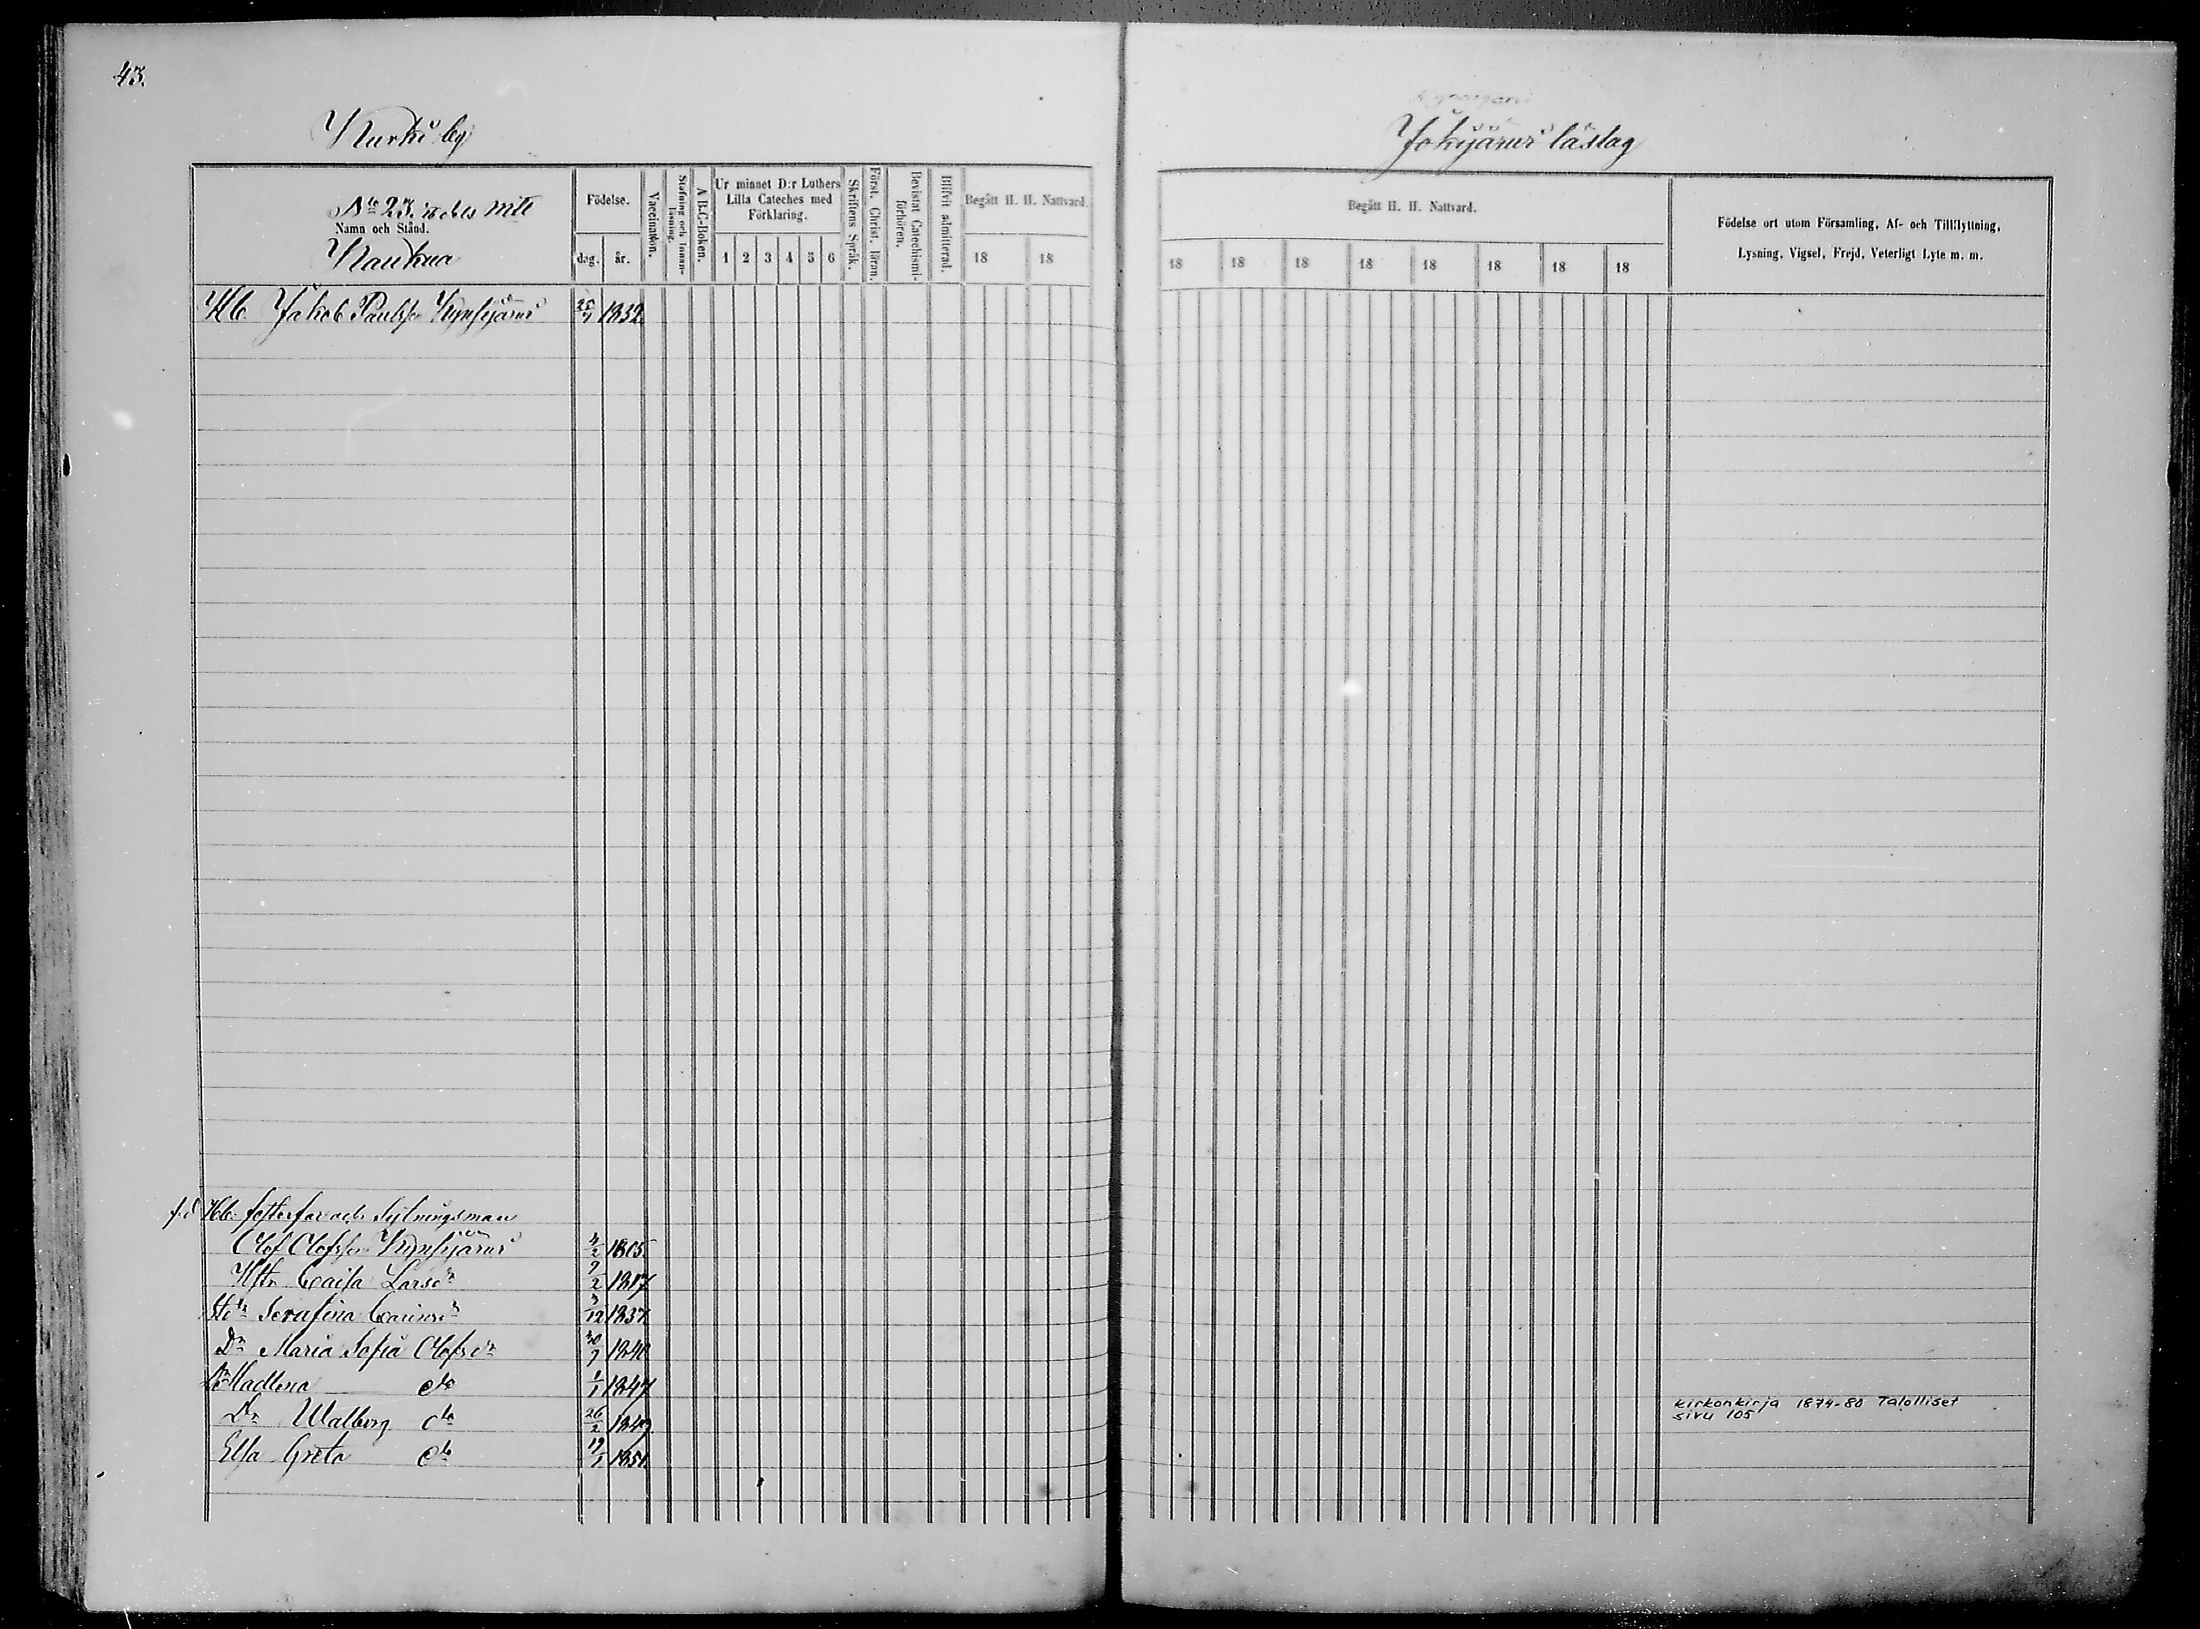 43.
Kurki by
Jokijärvi läslag
No 23. mtl
Namn och Stånd.
Kaukua
Födelse.
dag. år.
Vaccination.
Stafning och Innanläsning.
A-B-C-Boken.
Ur minnet D:r Luthers Lilla Cateches med Förklaring.
1 2 3 4 5 6
Skriftens Språk.
Först. Christ. läran.
Bevistat Catechismiförhören.
Blifvit admitterad.
Begått H. H. Nattvard.
18 18
Begått H. H. Nattvard.
18 18 18 18 18 18 18 18
Födelse ort utom Församling, Af- och Tillflyttning,
Lysning, Vigsel, Frejd, Veterligt Lyte m. m.
Hb. Jakob Paulss. 1832
f.d. Hb. fosterfar och Sytningsman
Olof Olofss. 4/2 1805
Hstr Caisa Larsdr 9/2 1817
Serafina 3/12 1837
Dr Maria Sofia Olofsdr 30/9 1840
Dr Madlena do 1/1 1847
Dr Walborg do 26/2 1849
Elsa Greta do 19/1 1851
kirkonkirja 1874-80 Talolliset
sivu 105